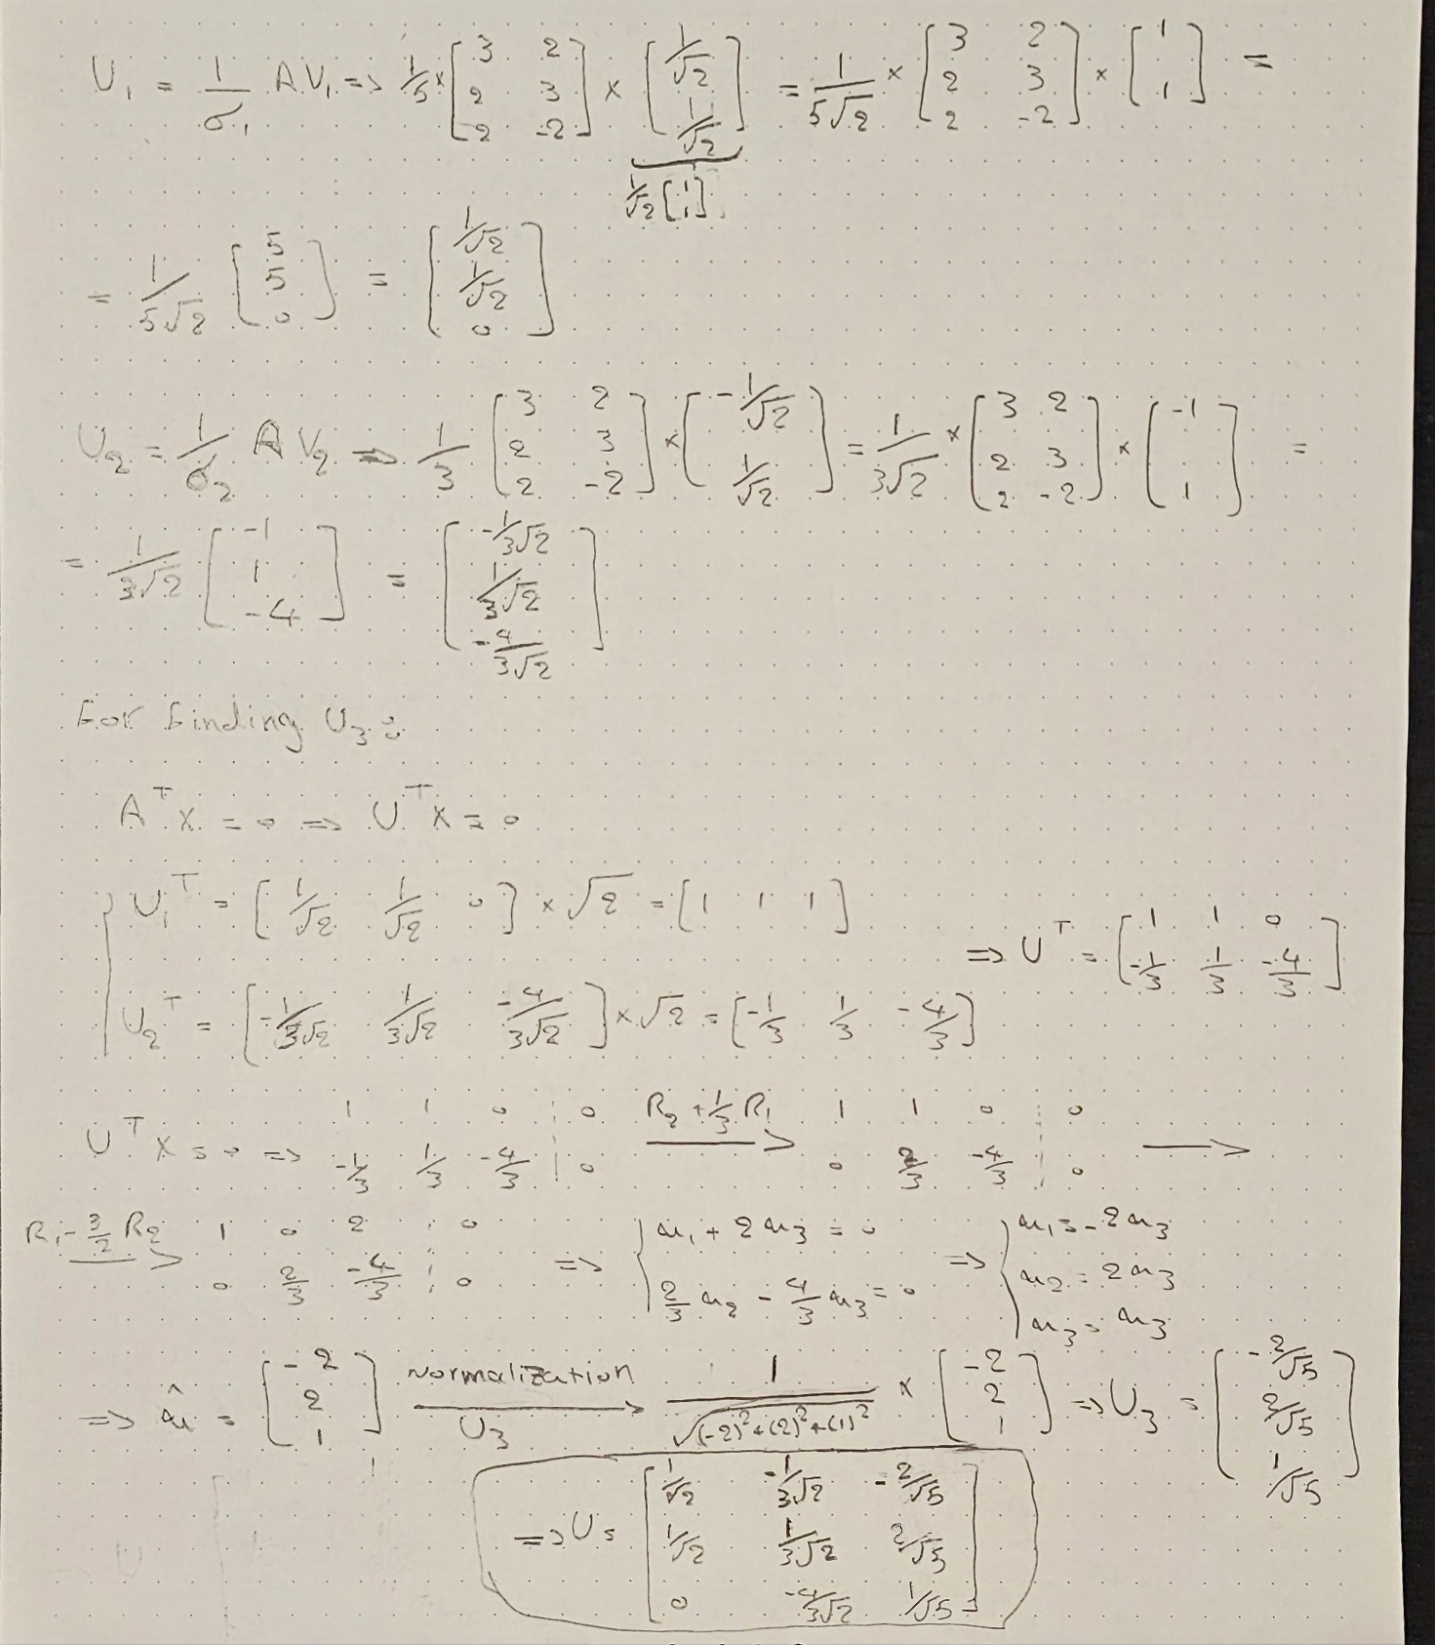 U₁ = 1/σ₁ A V₁ => 1/5 × [3 2; 2 3; 2 -2] × [1/√2; 1/√2] = 1/(5√2) × [3 2; 2 3; 2 -2] × [1; 1] =
1/√2 [1; 1]
= 1/(5√2) [5; 5; 0] = [1/√2; 1/√2; 0]
U₂ = 1/σ₂ A V₂ => 1/3 [3 2; 2 3; 2 -2] × [-1/√2; 1/√2] = 1/(3√2) × [3 2; 2 3; 2 -2] × [-1; 1] =
= 1/(3√2) [-1; 1; -4] = [-1/3√2; 1/3√2; -4/3√2]
For finding U₃:
Aᵀx = 0 => Uᵀx = 0
U₁ᵀ = [1/√2 1/√2 0] × √2 = [1 1 1]
=> Uᵀ = [1 1 0; -1/3 1/3 -4/3]
U₂ᵀ = [-1/3√2 1/3√2 -4/3√2] × √2 = [-1/3 1/3 -4/3]
Uᵀx = 0 => 1 1 0 ⋮ 0; -1/3 1/3 -4/3 ⋮ 0 R₂ + 1/3 R₁ → 1 1 0 ⋮ 0; 0 2/3 -4/3 ⋮ 0 →
R₁ - 3/2 R₂ → 1 0 2 ⋮ 0; 0 2/3 -4/3 ⋮ 0 => { u₁ + 2u₃ = 0; 2/3 u₂ - 4/3 u₃ = 0 => { u₁ = -2u₃; u₂ = 2u₃; u₃ = u₃
=> û = [-2; 2; 1] normalization U₃ → 1/√((-2)²+(2)²+(1)²) × [-2; 2; 1] => U₃ = [-2/√5; 2/√5; 1/√5]
=> U = [1/√2 -1/3√2 -2/√5; 1/√2 1/3√2 2/√5; 0 -4/3√2 1/√5]